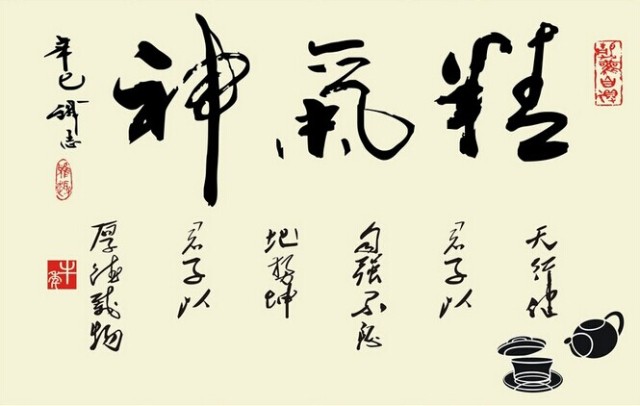 精氣神
辛巳
天行健
君子以
自强不息
地势坤
君子以
厚德载物